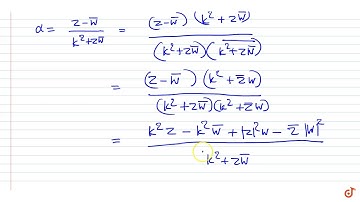 α = (z - w̅)/(k² + zw̅) = (z - w̅) (k² + zw̅)‾/((k² + zw̅)(k² + zw̅)‾)
= (z - w̅) (k² + z̅w)/((k² + zw̅)(k² + z̅w))
= (k²z - k²w̅ + |z|²w - z̅|w|²)/(k² + zw̅)